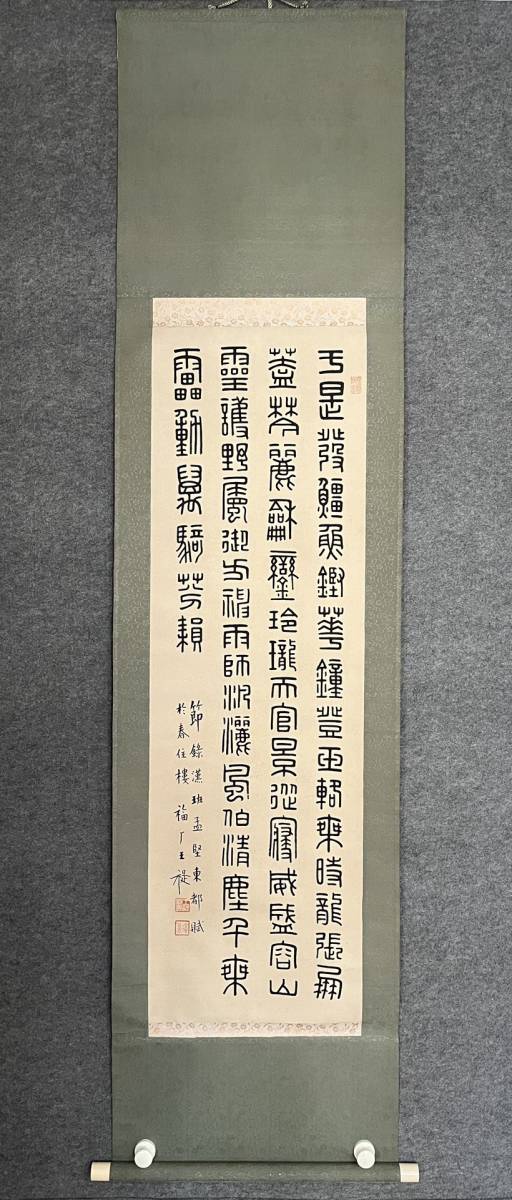 于是發䲔魚鏗華鐘登玉輅乘時龍張鳳
蓋棽麗龢鑾玲瓏天官景從寢威盛容山
靈護野屬御方神雨師汎灑風伯清塵千乘
雷動萬騎芬
節錄漢班孟堅東都賦
於春住樓 福厂王禔